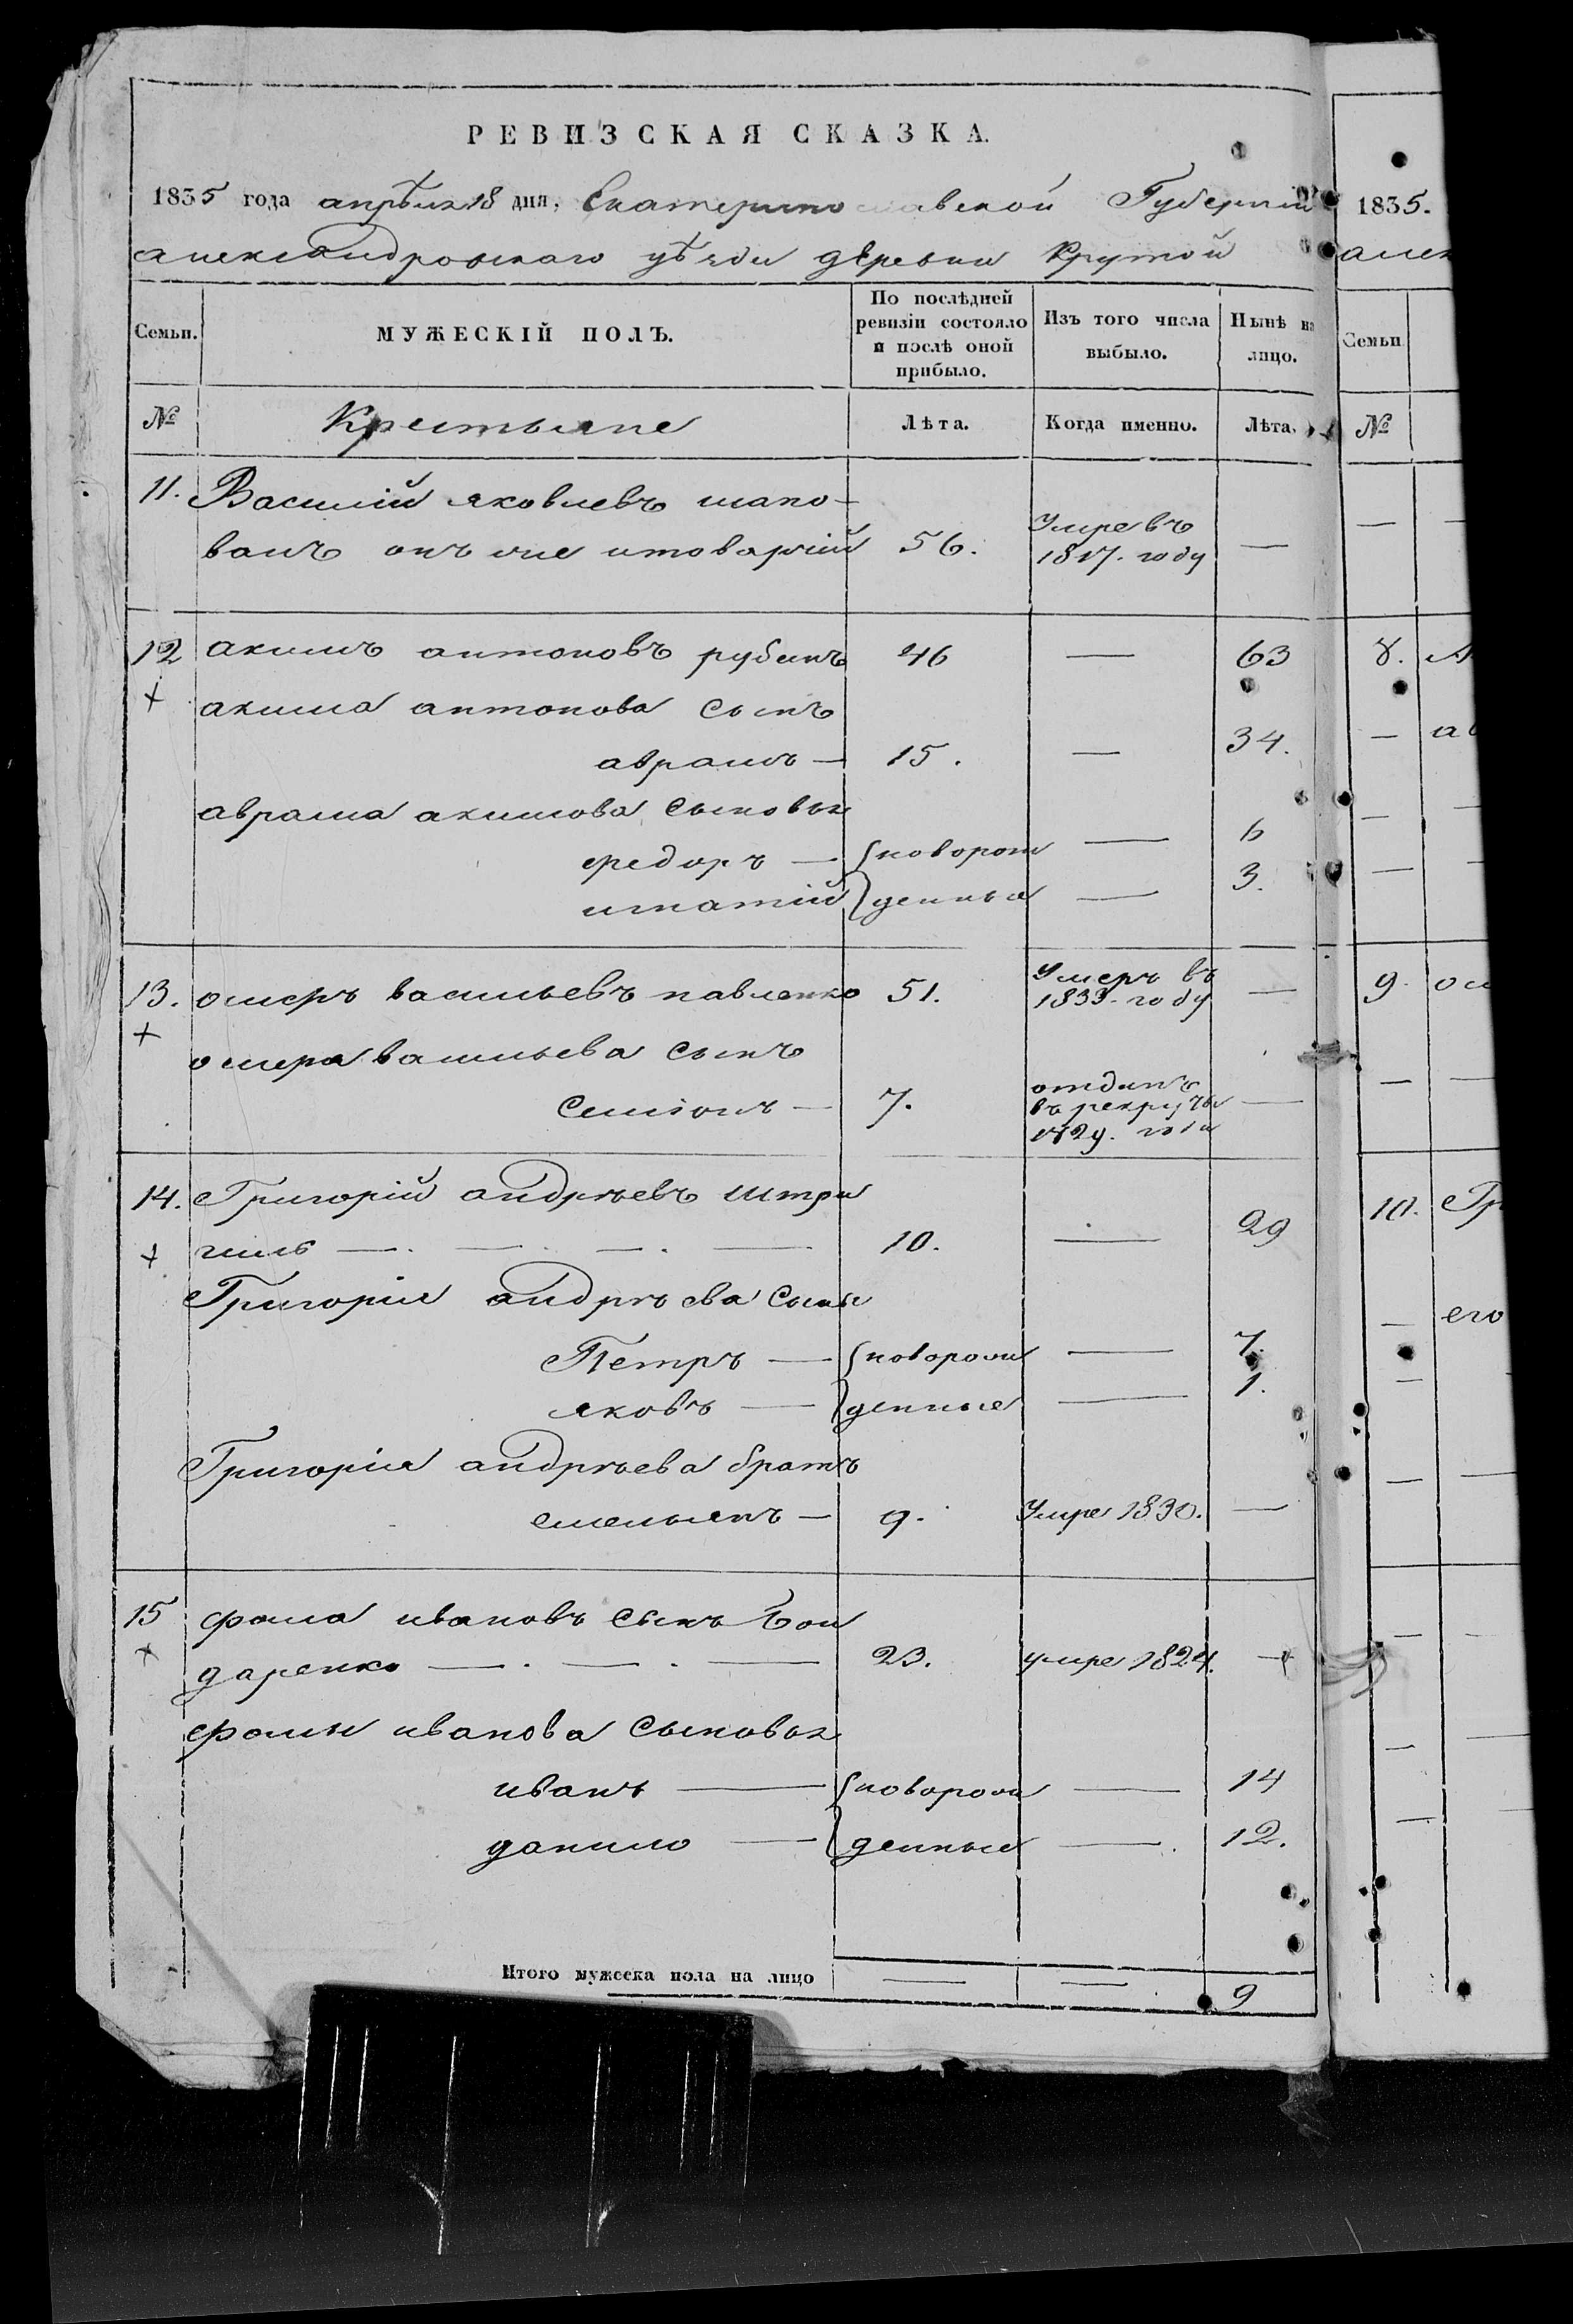 РЕВИЗСКАЯ СКАЗКА.
1835 года апрѣля 18 дня, Екатеринославской Губерніи
александровскаго уѣзда деревни Крутой
Семьи.
МУЖЕСКІЙ ПОЛЪ.
По послѣдней ревизіи состояло и послѣ оной прибыло.
Изъ того числа выбыло.
Нынѣ на лицо.
№ Крестьяне Лѣта. Когда именно. Лѣта.
11. Василій яковлевъ шапо-
валъ онъ же 56. Умре въ 1817. году —
12 акимъ антоновъ рубанъ 46 — 63
+ акима антонова сынъ
аврамъ — 15. — 34.
аврама акимова сыновья
федоръ — новорож — 6
игнатій денные — 3.
13. омеръ васильевъ павленко 51. Умеръ въ 1833. году —
+ омера васильева сынъ
семіонъ — 7. отданъ въ рекруты 1829. года —
14. Григорій андрѣевъ штри
+ гиль — . — . — . — 10. — 29
Григорія андрѣева сыны
Петръ — новорож — 7.
яковъ — денные — 1.
Григорія андрѣева братъ
емельянъ — 9. Умре 1830. —
15 фома ивановъ сынъ бон
+ даренко — . — . — 23. умре 1824. —
фомы иванова сыновья
иванъ — новорож — 14
данило — денные — 12.
Итого мужеска пола на лицо — — 9
1835.
алек
Семьи
№
8. А
— ав
9. ом
10. Гр
его